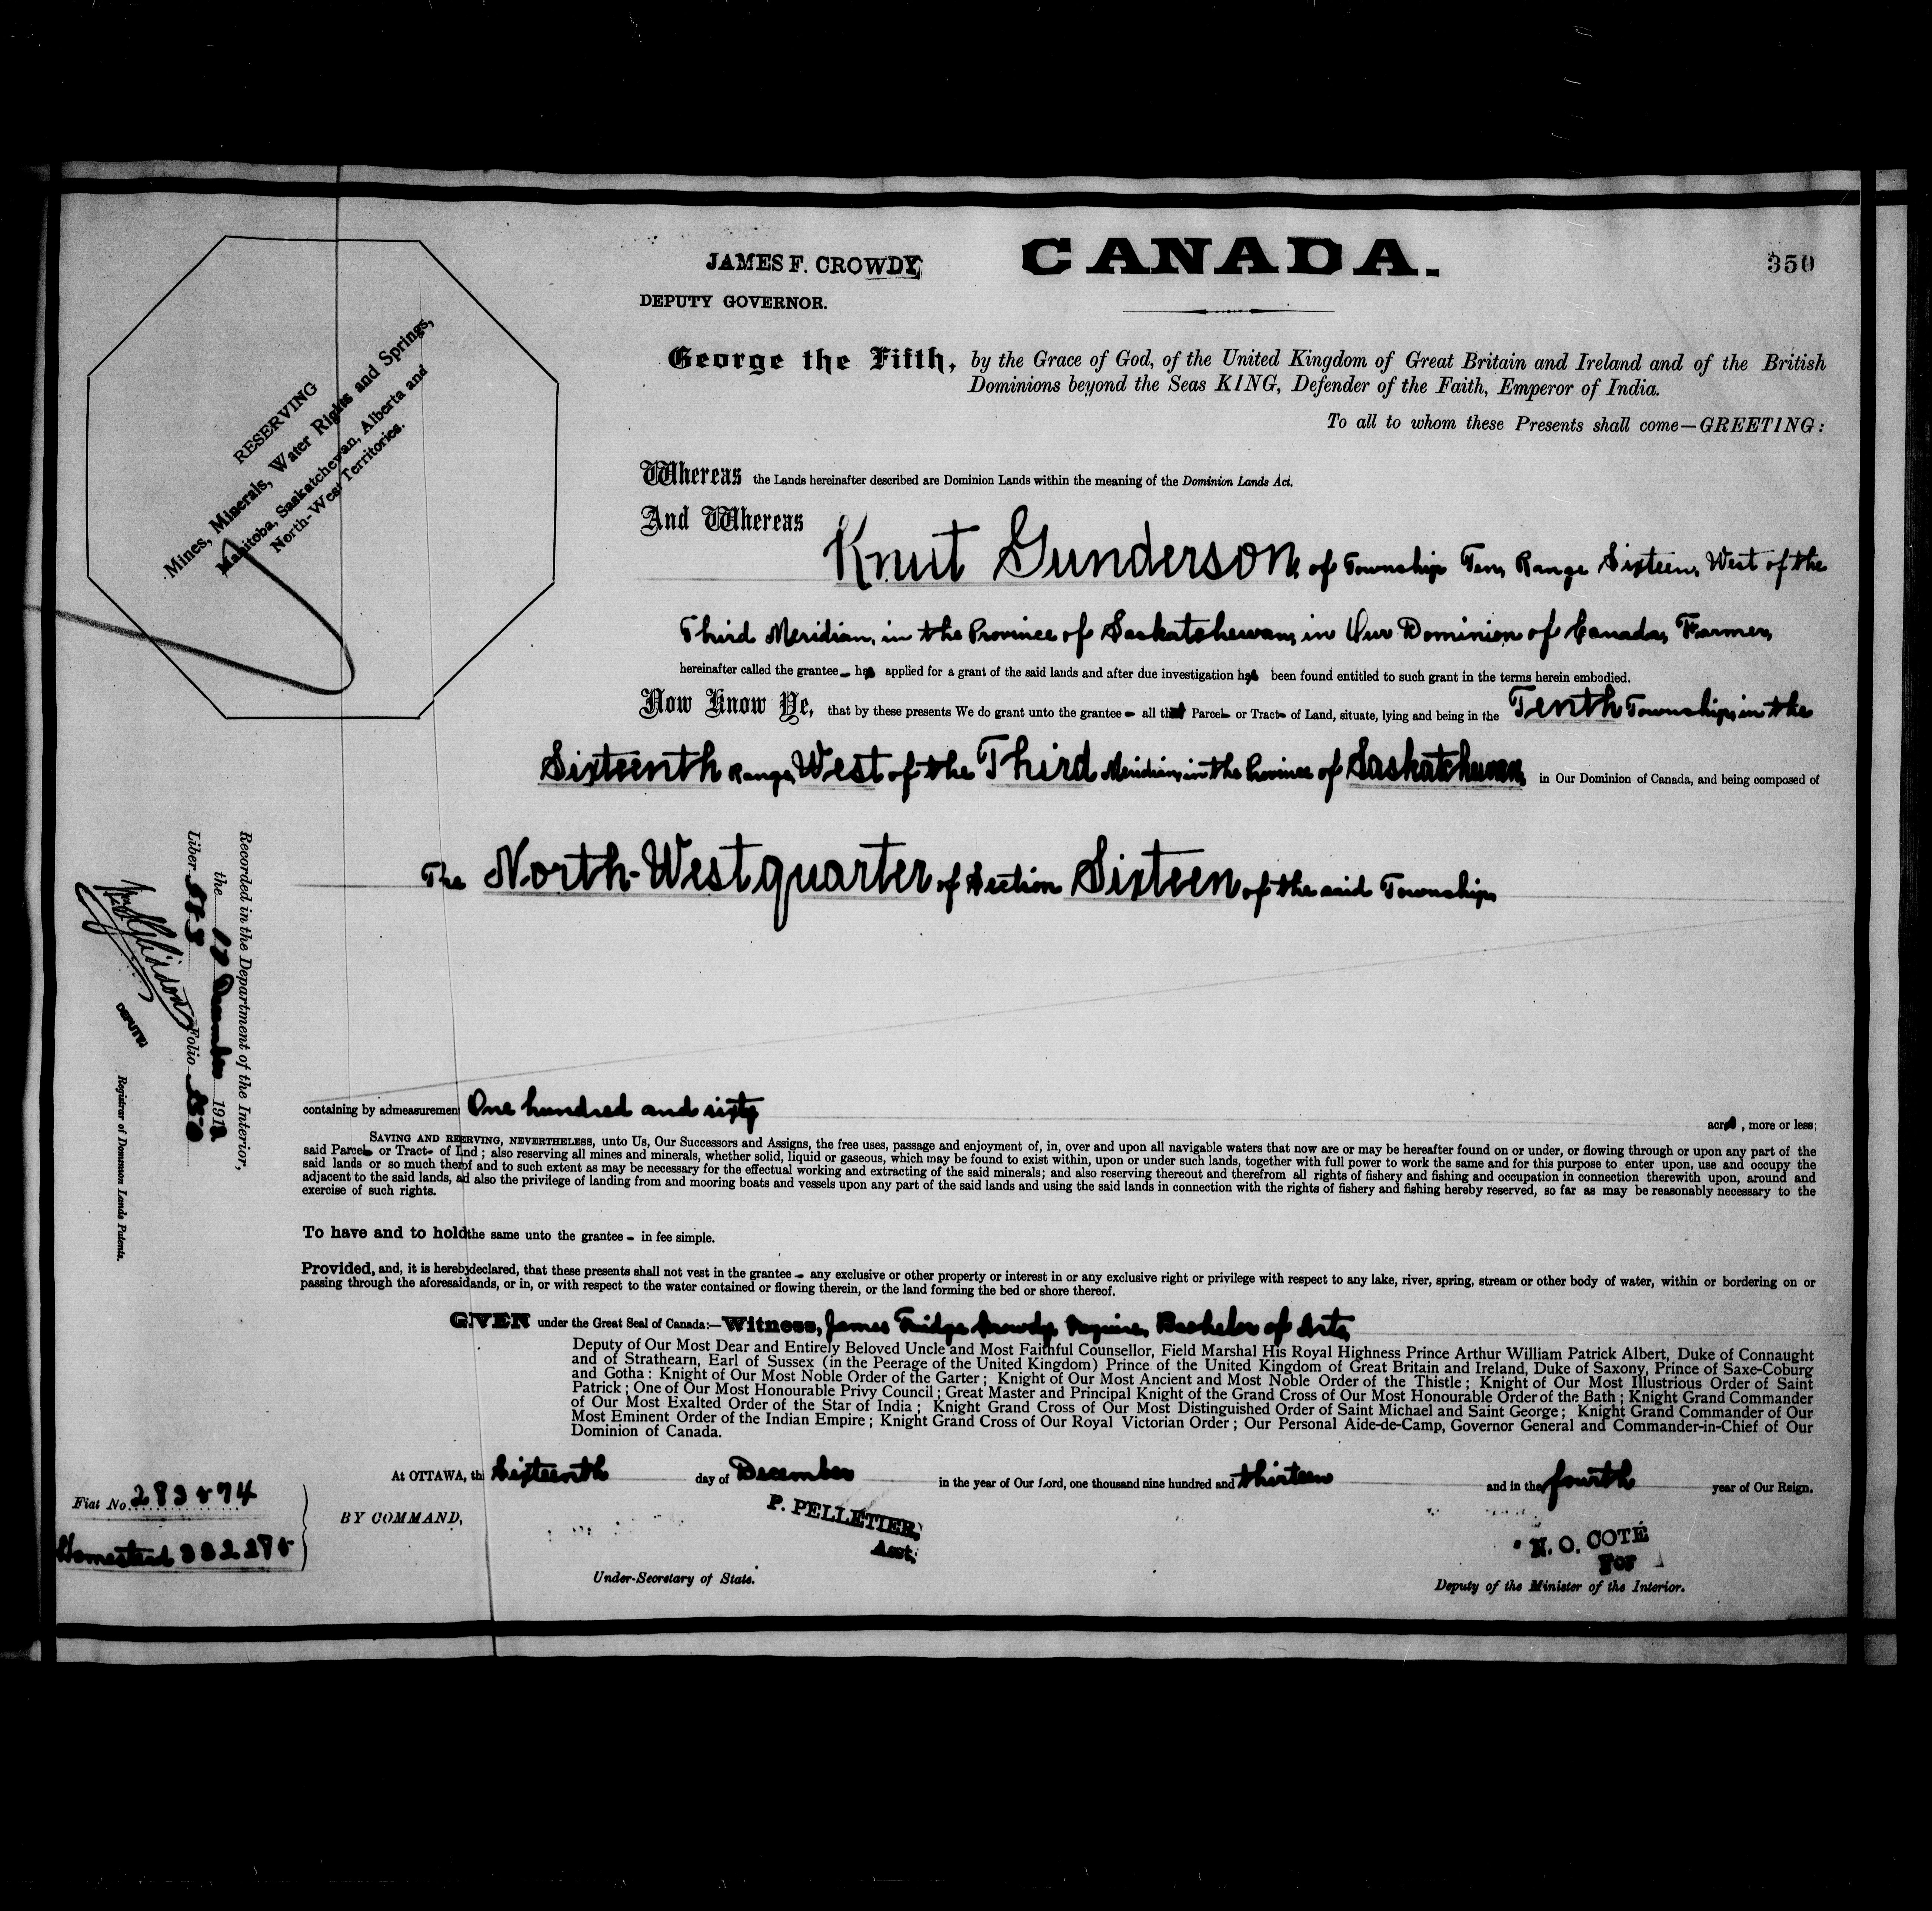 JAMES F. CROWDY,
DEPUTY GOVERNOR.
CANADA.
350
RESERVING
Mines, Minerals, Water Rights and Springs,
Manitoba, Saskatchewan, Alberta and
North-West Territories.
George the Fifth, by the Grace of God, of the United Kingdom of Great Britain and Ireland and of the British
Dominions beyond the Seas KING, Defender of the Faith, Emperor of India.
To all to whom these Presents shall come—GREETING:
Whereas the Lands hereinafter described are Dominion Lands within the meaning of the Dominion Lands Act.
And Whereas
Knut Gunderson, of Township Ten, Range Sixteen, West of the
Third Meridian, in the Province of Saskatchewan, in Our Dominion of Canada, Farmer,
hereinafter called the grantee – has applied for a grant of the said lands and after due investigation has been found entitled to such grant in the terms herein embodied.
Now Know Ye, that by these presents We do grant unto the grantee – all that Parcel – or Tract – of Land, situate, lying and being in the Tenth Township, in the
Sixteenth Range, West of the Third Meridian, in the Province of Saskatchewan, in Our Dominion of Canada, and being composed of
The North-West quarter of Section Sixteen of the said Township
containing by admeasuremen One hundred and sixty
acres, more or less;
SAVING AND RESERVING, NEVERTHELESS, unto Us, Our Successors and Assigns, the free uses, passage and enjoyment of, in, over and upon all navigable waters that now are or may be hereafter found on or under, or flowing through or upon any part of the
said Parcel – or Tract – of Lnd ; also reserving all mines and minerals, whether solid, liquid or gaseous, which may be found to exist within, upon or under such lands, together with full power to work the same and for this purpose to enter upon, use and occupy the
said lands or so much therof and to such extent as may be necessary for the effectual working and extracting of the said minerals; and also reserving thereout and therefrom all rights of fishery and fishing and occupation in connection therewith upon, around and
adjacent to the said lands, ad also the privilege of landing from and mooring boats and vessels upon any part of the said lands and using the said lands in connection with the rights of fishery and fishing hereby reserved, so far as may be reasonably necessary to the
exercise of such rights.
To have and to hold the same unto the grantee – in fee simple.
Provided, and, it is hereby declared, that these presents shall not vest in the grantee – any exclusive or other property or interest in or any exclusive right or privilege with respect to any lake, river, spring, stream or other body of water, within or bordering on or
passing through the aforesaid ands, or in, or with respect to the water contained or flowing therein, or the land forming the bed or shore thereof.
GIVEN under the Great Seal of Canada:—Witness, James Fridge Crowdy, Esquire, Bachelor of Arts,
Deputy of Our Most Dear and Entirely Beloved Uncle and Most Faithful Counsellor, Field Marshal His Royal Highness Prince Arthur William Patrick Albert, Duke of Connaught
and of Strathearn, Earl of Sussex (in the Peerage of the United Kingdom) Prince of the United Kingdom of Great Britain and Ireland, Duke of Saxony, Prince of Saxe-Coburg
and Gotha : Knight of Our Most Noble Order of the Garter ; Knight of Our Most Ancient and Most Noble Order of the Thistle ; Knight of Our Most Illustrious Order of Saint
Patrick ; One of Our Most Honourable Privy Council ; Great Master and Principal Knight of the Grand Cross of Our Most Honourable Order of the Bath ; Knight Grand Commander
of Our Most Exalted Order of the Star of India ; Knight Grand Cross of Our Most Distinguished Order of Saint Michael and Saint George ; Knight Grand Commander of Our
Most Eminent Order of the Indian Empire ; Knight Grand Cross of Our Royal Victorian Order ; Our Personal Aide-de-Camp, Governor General and Commander-in-Chief of Our
Dominion of Canada.
At OTTAWA, th Sixteenth day of December in the year of Our Lord, one thousand nine hundred and thirteen and in the fourth year of Our Reign.
BY COMMAND,
P. PELLETIER,
Asst.
Under-Secretary of State.
N. O. COTÉ
For
Deputy of the Minister of the Interior.
Fiat No. 283594
Homestead
Recorded in the Department of the Interior,
the 17 December 191
Liber Folio 350
DEPUTY
Registrar of Dominion Lands Patents.